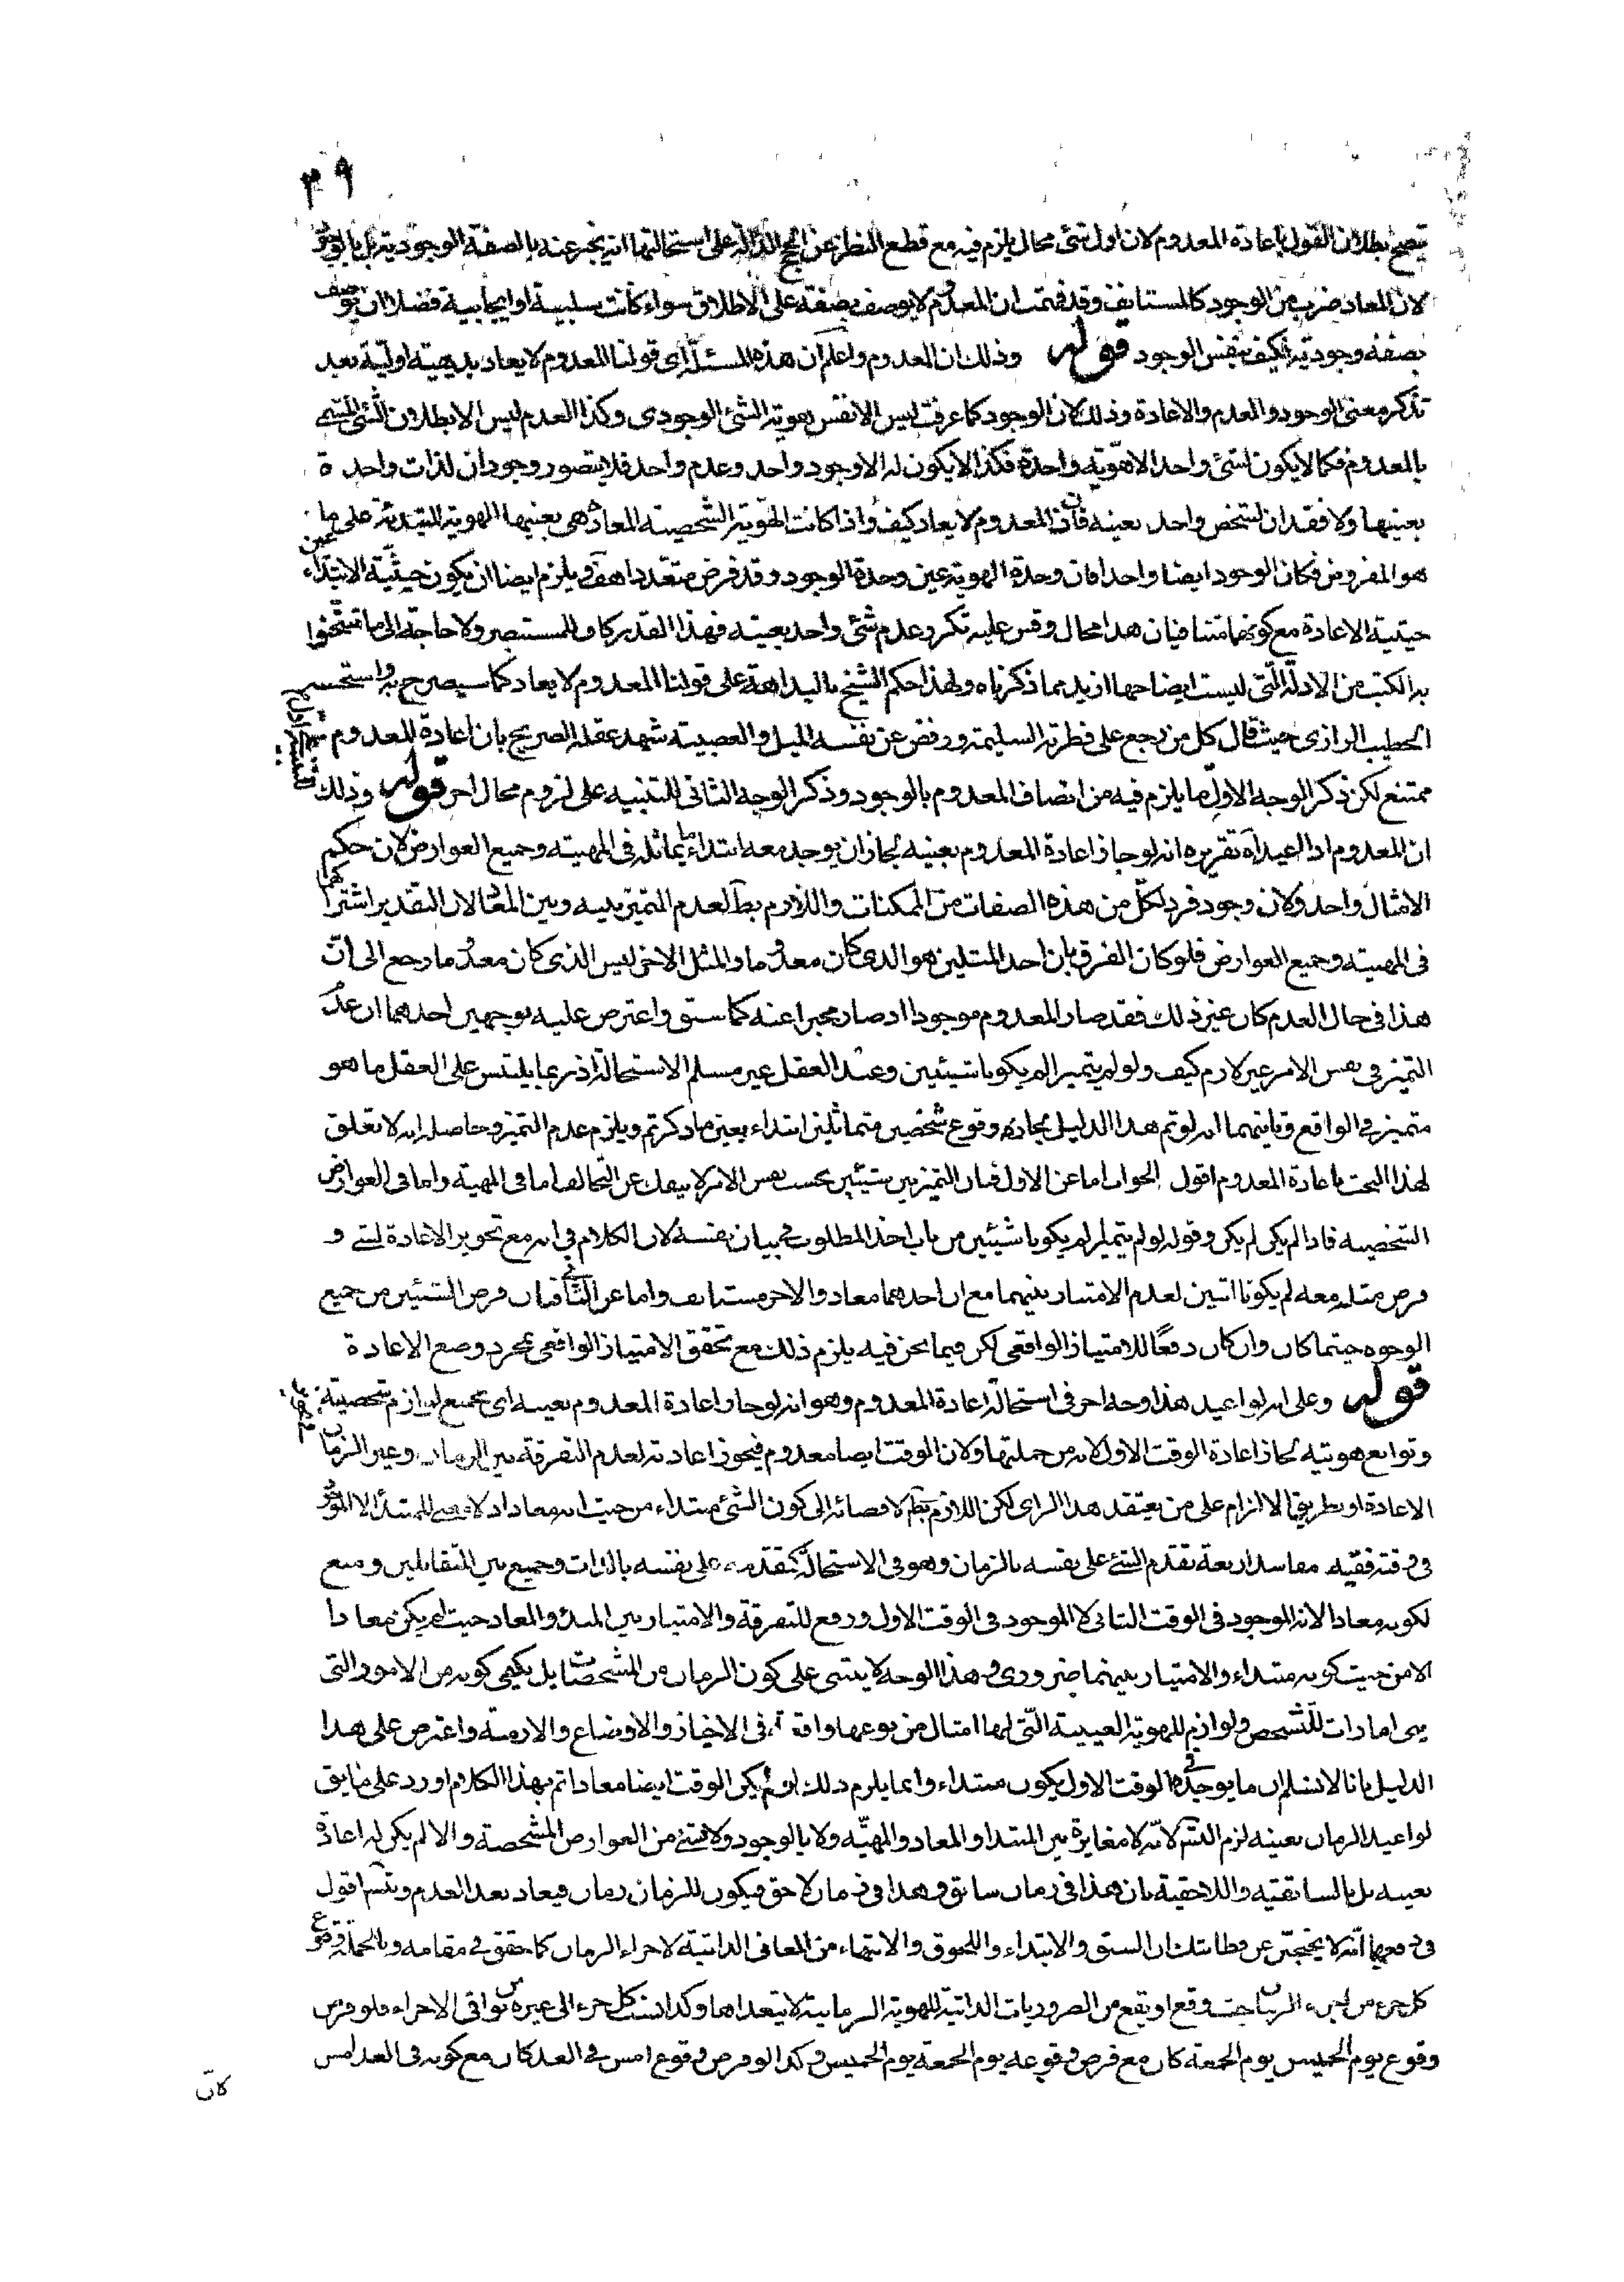 ٣٩
يتضح بطلان القول باعادة المعدوم لان اول شئ محال يلزم فيه مع قطع النظر عن الحجج الدالة على استحالتها انه يخبر عنه بالصفة الوجودية بل بالوجود
لان المعاد ضرب من الوجود كالمستانف وقد فهمت ان المعدوم لا يوصف بصفة على الاطلاق سواء كانت سلبية او ايجابية فضلا ان يوصف
بصفة وجودية فكيف بنفس الوجود قوله وذلك ان المعدوم واعلم ان هذه المسئلة اى قولنا المعدوم لا يعاد بديهية اولية بعد
تذكر معنى الوجود والعدم والاعادة وذلك لان الوجود كما عرفت ليس الا نفس هوية الشئ الوجودى وكذا العدم ليس الا بطلان الشئ المسمى
بالمعدوم فكما لا يكون لشئ واحد الا هوية واحدة فكذا لا يكون له الا وجود واحد وعدم واحد فلا يتصور وجودان لذات واحدة
بعينها ولا فقدان لشخص واحد بعينه فان المعدوم لا يعاد كيف واذا كانت الهوية الشخصية المعادة هى بعينها الهوية المبتدئة على ما
هو المفروض فكان الوجود ايضا واحدا فان وحدة الهوية عين وحدة الوجود وقد فرض متعددا هف ويلزم ايضا ان يكون حيثية الابتداء عين
حيثية الاعادة مع كونهما متنافيان هذا محال وقس عليه تكرر عدم شئ واحد بعينه فهذا القدر كاف للمستبصر ولا حاجة الى ما شحنوا
به الكتب من الادلة التى ليست ايضاحها ازيد مما ذكرناه ولهذا حكم الشيخ بالبداهة على قولنا المعدوم لا يعاد كما سيصرح به واستحسنه
الخطيب الرازى حيث قال كل من رجع على فطرته السليمة ورفض عن نفسه الميل والعصبية شهد عقله الصريح بان اعادة المعدوم
ممتنع لكن ذكر الوجه الاول ما يلزم فيه من اتصاف المعدوم بالوجود وذكر الوجه الثانى للتنبيه على لزوم محال اخر قوله وذلك
ان المعدوم اذا اعيد اه تقريره انه لو جاز اعادة المعدوم بعينه لجاز ان يوجد معه ابتداء ما يماثله فى المهية وجميع العوارض لان حكم
الامثال واحد ولان وجود فرد لكل من هذه الصفات من الممكنات واللازم بط لعدم التميز بينه وبين المعاد لان التقدير اشتراكهما
فى المهية وجميع العوارض فلو كان الفرق بان احد المثلين هو الذى كان معدوما والمثل الاخر ليس الذى كان معدوما رجع الى ان
هذا فى حال العدم كان غير ذلك فقد صار المعدوم موجودا اذ صار مخبرا عنه كما سبق واعترض عليه بوجهين احدهما ان عدم
التميز فى نفس الامر غير لازم كيف ولو لم يتميزا لم يكونا شيئين وعند العقل غير مسلم الاستحالة اذ ربما يلتبس على العقل ما هو
متميز فى الواقع وثانيهما انه لو تم هذا الدليل لجاز وقوع شخصين متماثلين ابتداء بعين ما ذكرتم ويلزم عدم التميز وحاصله انه لا تعلق
لهذا البحث باعادة المعدوم اقول الجواب اما عن الاول فبان التميز بين شيئين بحسب نفس الامر لا ينفك عن التخالف اما فى المهية واما فى العوارض
الشخصية فاذا لم يكن لم يكن وقوله لو لم يتميزا لم يكونا شيئين من باب اخذ المطلوب فى بيان نفسه لان الكلام فى انه مع تجويز الاعادة لشئ و
فرض مثله معه لم يكونا اثنين لعدم الامتياز بينهما مع ان احدهما معاد والاخر مستانف واما عن الثانى فبان فرض الشيئين من جميع
الوجوه حيثما كان وان كان دفعا للامتياز الواقعى لكن فيما نحن فيه يلزم ذلك مع تحقق الامتياز الواقعى بمجرد وضع الاعادة
قوله وعلى انه لو اعيد هذا وجه اخر فى استحالة اعادة المعدوم وهو انه لو جاز اعادة المعدوم بعينه اى بجميع لوازم شخصيته
وتوابع هويته لجاز اعادة الوقت الاول لانه من جملتها ولان الوقت ايضا معدوم فيجوز اعادته لعدم التفرقة بين الزمان وغير الزمان
الاعادة او بطريق الالزام على من يعتقد هذا الراى لكن اللازم بط لافضائه الى كون الشئ مبتداء من حيث انه معاد اذ لا معنى للمبتدأ الا الموجود
فى وقته ففيه مفاسد اربعة تقدم الشئ على نفسه بالزمان وهو فى الاستحالة كتقدمه على نفسه بالذات وجميع بين المتقابلين ومنع
لكونه معادا لانه الموجود فى الوقت الثانى لا الموجود فى الوقت الاول ورفع للتفرقة والامتياز بين المبدئ والمعاد حيث لم يكن معادا
الا من حيث كونه مبتداء والامتياز بينهما ضرورى وهذا الوجه لا يبتنى على كون الزمان من المشخصات بل يكفى كونه من الامور التى
هى امارات للتشخص ولوازم للهوية العينية التى لها امثال من نوعها واقعة فى الاحياز والاوضاع والازمنة واعترض على هذا
الدليل بانا لا نسلم ان ما يوجد فى الوقت الاول يكون مبتداء وانما يلزم ذلك لو لم يكن الوقت ايضا معادا ثم بهذا الكلام اورد على ما يق
لو اعيد الزمان بعينه لزم التس لانه لا مغايرة بين المبتدا والمعاد والمهية ولا بالوجود ولا بشئ من العوارض المشخصة والا لم يكن له اعادة
بعينه بل بالسابقية واللاحقية بان هذا فى زمان سابق وهذا فى زمان لاحق فيكون للزمان زمان فيعاد بعد العدم ويتس اقول
فى دفعهما انه لا يحتجب عن فطانتك ان السبق والابتداء واللحوق والانتهاء من المعانى الذاتية لاجزاء الزمان كما حقق فى مقامه وبالجملة وقوع
كل جزء من اجزاء الزمان حيث وقع او يقع من الضروريات الذاتية للهوية الزمانية لا يتعداها وكذا نسبة كل جزء الى غيره من بواقى الاجزاء فلو فرض
وقوع يوم الخميس يوم الجمعة كان مع فرض وقوعه يوم الجمعة يوم الخميس وكذا لو فرض وقوع امس فى الغد كان مع كونه فى الغد امس
لان